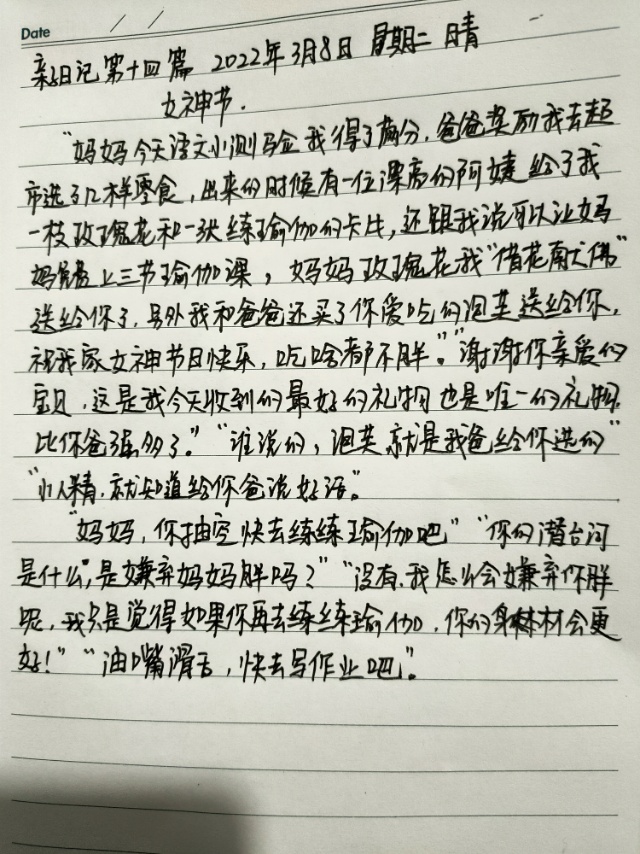 Date / /
亲子日记第十四篇 2022年3月8日 星期二 晴
女神节.
“妈妈今天语文小测验我得了满分,爸爸奖励我去超
市选了几样零食,出来的时候有一位漂亮的阿姨给了我
一枝玫瑰花和一张练瑜伽的卡片,还跟我说可以让妈
妈免费上三节瑜伽课,妈妈玫瑰花我“借花献佛”
送给你了,另外我和爸爸还买了你爱吃的泡芙送给你,
祝我家女神节日快乐,吃啥都不胖。”“谢谢你亲爱的
宝贝,这是我今天收到的最好的礼物也是唯一的礼物,
比你爸强多了。”“谁说的,泡芙就是我爸给你选的”
“小人精,就知道给你爸说好话”。
“妈妈,你抽空快去练练瑜伽吧”“你的潜台词
是什么,是嫌弃妈妈胖吗?”“没有,我怎么会嫌弃你胖
呢,我只是觉得如果你再去练练瑜伽,你的身材会更
好!”“油嘴滑舌,快去写作业吧”。